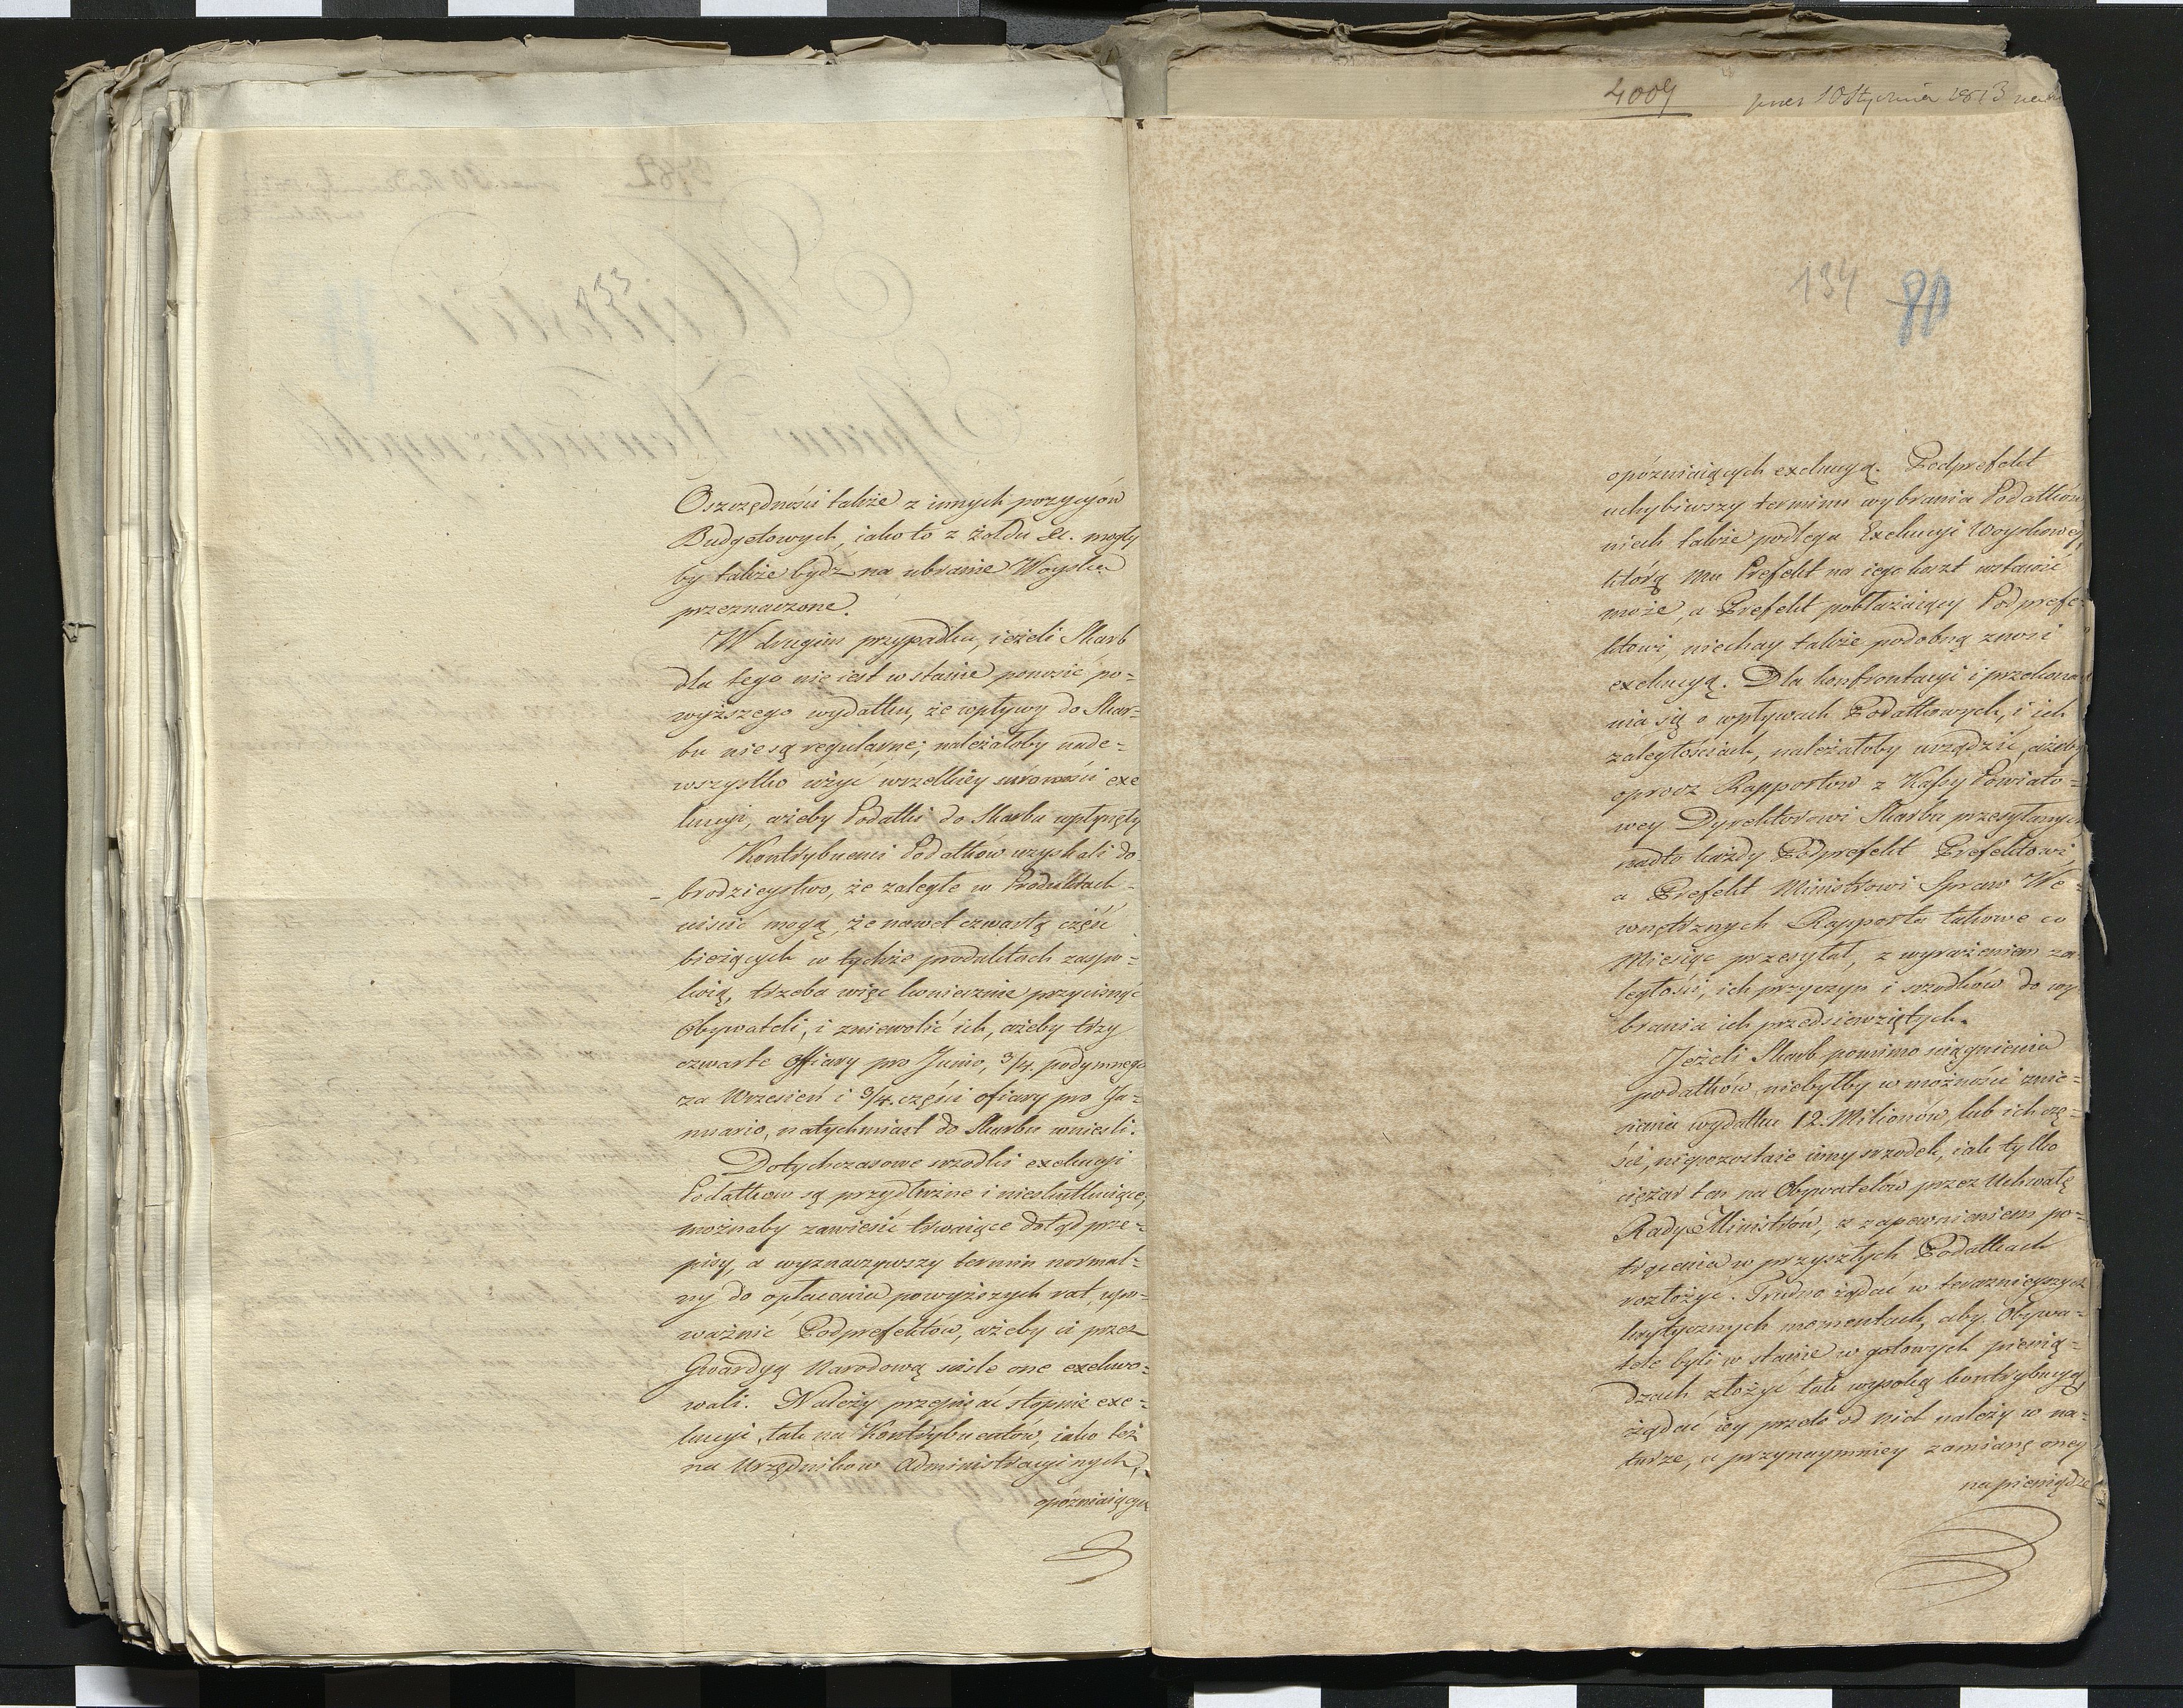 133
Oszczędności także z innych pozycyów
Budgetowych, iako to z żołdu &c. mogły
by także bydź na ubranie Woyska
przeznaczone.
W drugim przypadku, ieżeli Skarb
dla tego nie iest w stanie ponosić po=
wyższego wydatku, że wpływy do Skar=
bu nie są regularne; należałoby nade=
wszystko użyć wszelkiey surowości exe
kucyi, ażeby Podatki do Skarbu wpłynęły
Kontrybuenci Podatków uzyskali do
brodzieystwo, że zaległe w Produktach
uiścić mogą, że nawet czwartą część
bieżących w tychże produktach zaspo=
koią, trzeba więc koniecznie przycisnąć
Obywateli, i zniewolić ich, ażeby trzy
czwarte Offiary pro Junio, 3/4. podymnego
za Wrzesień i 3/4. części ofiary pro Ja=
nuario, natychmiast do Skarbu wnieśli.
Dotychczasowe srzodki exekucyi
Podatkow są przydłuższe i nieskutkuiące,
możnaby zawiesić trwaiące dotąd prze=
pisy, a wyznaczywszy termin normal=
ny do opłacania powyższych rat, upo=
ważnić Podprefektów, ażeby ci przez
Gwardyą Narodową ściśle one exekwo=
wali. Należy przepisać stopnie exe=
kucyi, tak na Kontrybuentów, iako też
na Urzędnikow Administracyinych,
opóźniaiących
4009 przes 10 Stycznia 1813
134 80
opóźniaiących exekucyą. Podprefekt
uchybiwszy terminu wybrania Podatków
niech także podlega Exekucyi Woyskowey,
którą mu Prefekt na iego koszt usławić
może, a Prefekt pobłażaiący Podprefe=
ktowi, niechay także podobną znosi
exekucyą. Dla konfrontacyi i przekona
nia się o wpływach Podatkowych, i ich
zaległościach, należałoby urządzić, ażeby
oprocz Rapportow z Kassy Powiato=
wey Dyrektorowi Skarbu przesyłanych
nadto każdy Podprefekt Prefektowi,
a Prefekt Ministrowi Spraw We=
wnętrznych Rapporta takowe co
Miesiąc przesyłał, z wyrażeniem za=
ległości, ich przyczyn i srzodków do wy
brania ich przedsięwziętych.
Jeżeli Skarb pomimo ściągnienia
podatków, niebyłby w możności znie=
sienia wydatku 12. Milionów, lub ich czę=
ści, niepozostaie inny srzodek, iak tylko
ciężar ten na Obywatelów przez Uchwałę
Rady Ministrów, z zapewnieniem po=
trącenia w przyszłych Podatkach
rozłożyć. Trudno żądać w teraznieyszych
krytycznych momentach, aby Obywa=
tele byli w stanie w gotowych pienią=
dzach złożyć tak wysoką kontrybucyą,
żądać iey przeto od nich należy w na=
turze, a przynaymniey zamianę oney
na pieniądze